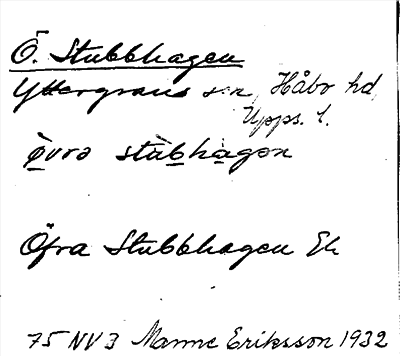 Ö. Stubbhagen
Yttergrans sn, Håbo hd,
Upps. l.
ø̀vrə stùbhàgən
Öfra Stubbhagen Ek
75 NV 3 Manne Eriksson 1932